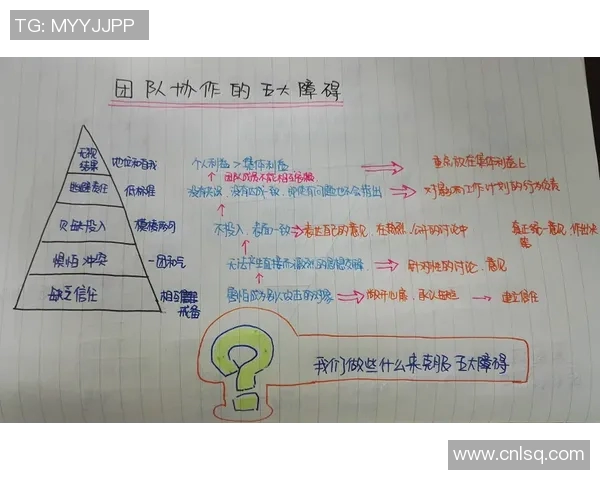 TG: MYYJJPP
团队协作的五大障碍
无视结果 地位和自我 个人利益 > 集体利益 重点放在集体利益上
团队成员不能相互
逃避责任 低标准 没有失误、没有 即使有问题也不会指出 对影响工作计划的行为负责
欠缺投入 模棱两可 不投入,表面一致 表达自己的意见,在 公开的讨论中 真正统一意见,作出决策
惧怕冲突 一团和气 无法产生直接而激烈的思想交锋 针对性的讨论、意见
缺乏信任 相互戒备 害怕成为别人攻击的对象 敞开心扉,承认 建立信任
我们做些什么来克服五大障碍
www.cnlsq.com